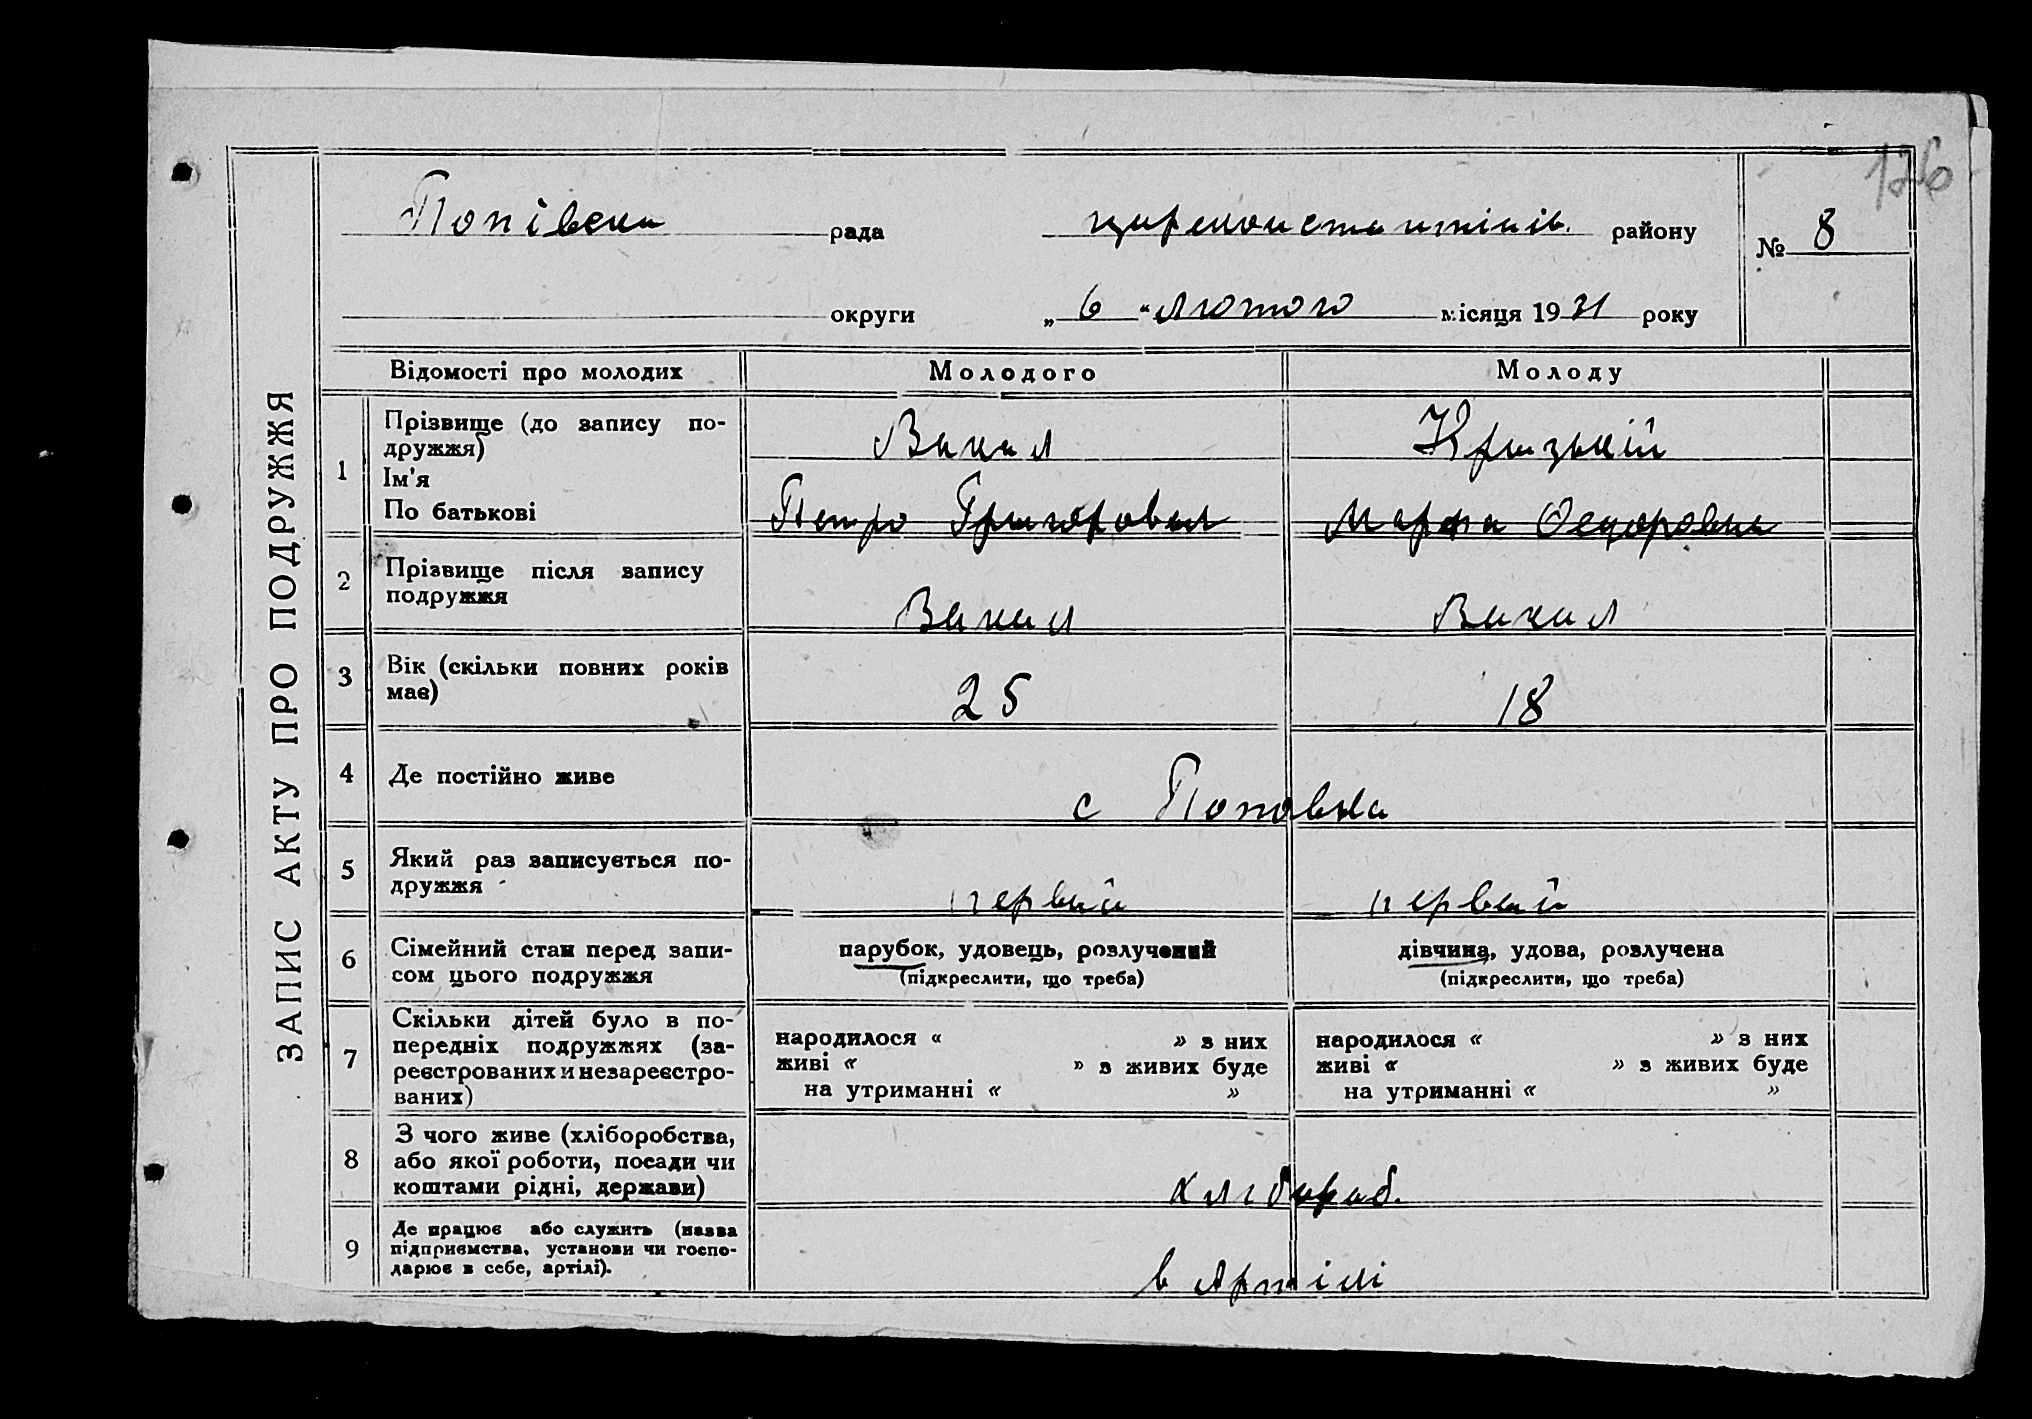 126
Попівська рада царсконстантінів. району № 8
округи „ 6 “ лютого місяця 19 31 року
ЗАПИС АКТУ ПРО ПОДРУЖЖЯ
Відомості про молодих Молодого Молоду
1 Прізвище (до запису по-
дружжя) Вакал
Ім'я
По батькові Петро Григорович Марфа Федоровна
2 Прізвище після запису
подружжя Вакал Вакал
3 Вік (скільки повних років
має) 25 18
4 Де постійно живе с Поповка
5 Який раз записується по-
дружжя первий первий
6 Сімейний стан перед запи-
сом цього подружжя
парубок, удовець, розлучений
(підкреслити, що треба)
дівчина, удова, розлучена
(підкреслити, що треба)
7 Скільки дітей було в по-
передніх подружжях (за-
реєстрованих и незареєстро-
ваних)
народилося « » з них
живі « » з живих буде
на утриманні « »
народилося « » з них
живі « » з живих буде
на утриманні « »
8 З чого живе (хліборобства,
або якої роботи, посади чи
коштами рідні, держави) хлібороб.
9 Де працює або служить (назва
підприємства, установи чи госпо-
дарює в себе, артілі). в Артілі